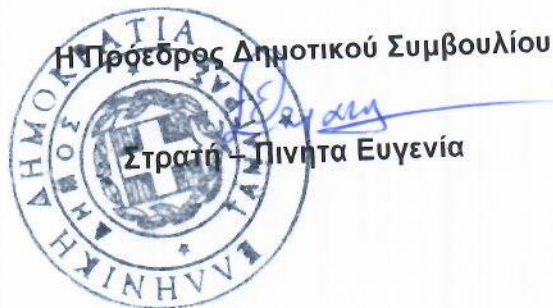 Η Πρόεδρος Δημοτικού Συμβουλίου
Στρατή – Πινήτα Ευγενία
ΕΛΛΗΝΙΚΗ ΔΗΜΟΚΡΑΤΙΑ
ΔΗΜΟΣ ΤΑΝΑΓΡΑΣ